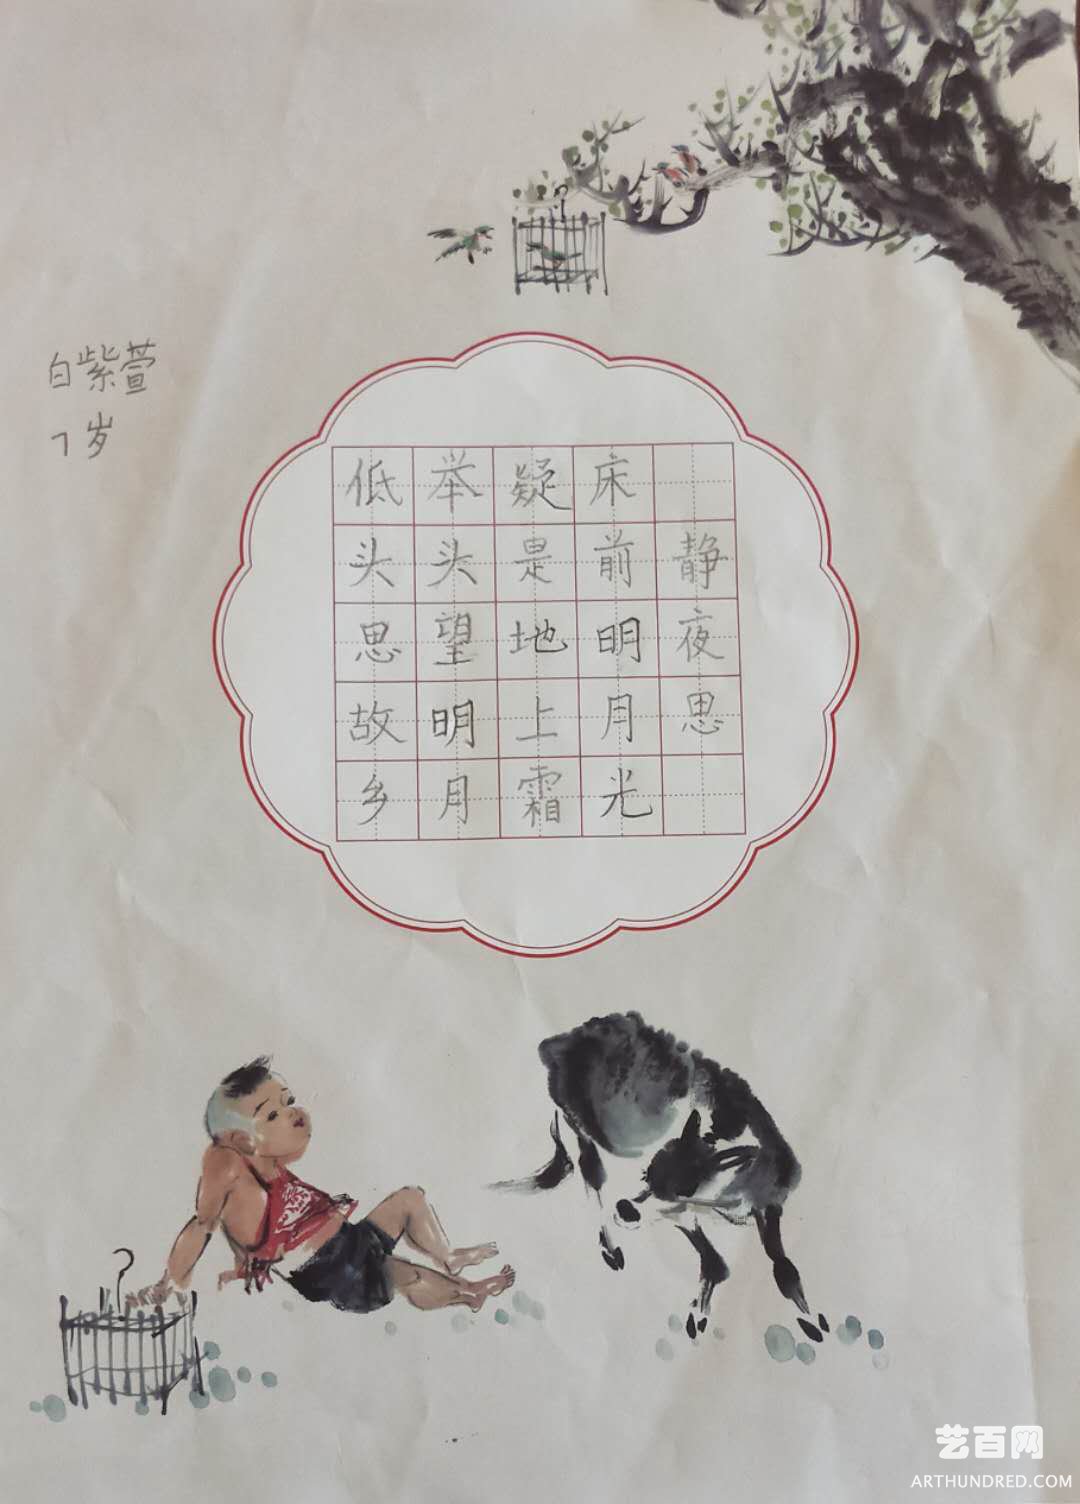 白紫萱
7岁
静夜思
床前明月光
疑是地上霜
举头望明月
低头思故乡
艺百网
ARTHUNDRED.COM